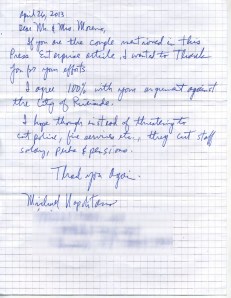 April 26, 2013
Dear Mr & Mrs. Moreno,
If you are the couple mentioned in this
Press Enterprise article, I wanted to Thank
you for your efforts.
I agree 100% with your argument against
the City of Riverside.
I have though instead of threating to
cut police, fire services etc., they cut staff
salary, perks & pensions.
Thank you Again.
Michael Napolitano